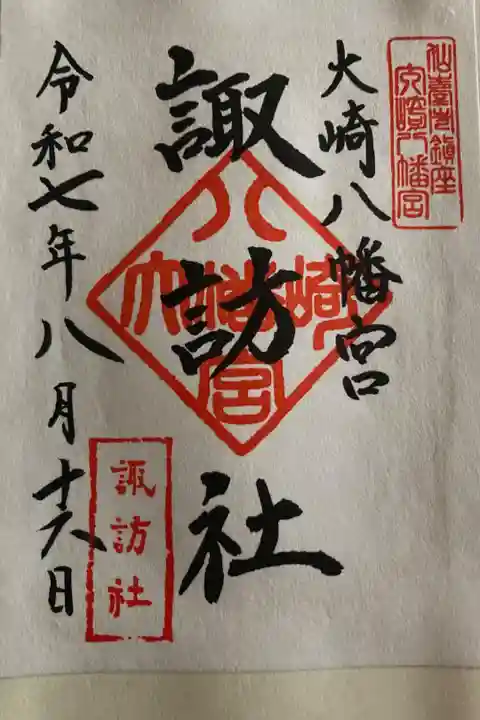 仙臺鎮座
大崎八幡宮
大崎八幡宮
諏訪社
大崎八幡宮
令和七年八月十六日
諏訪社